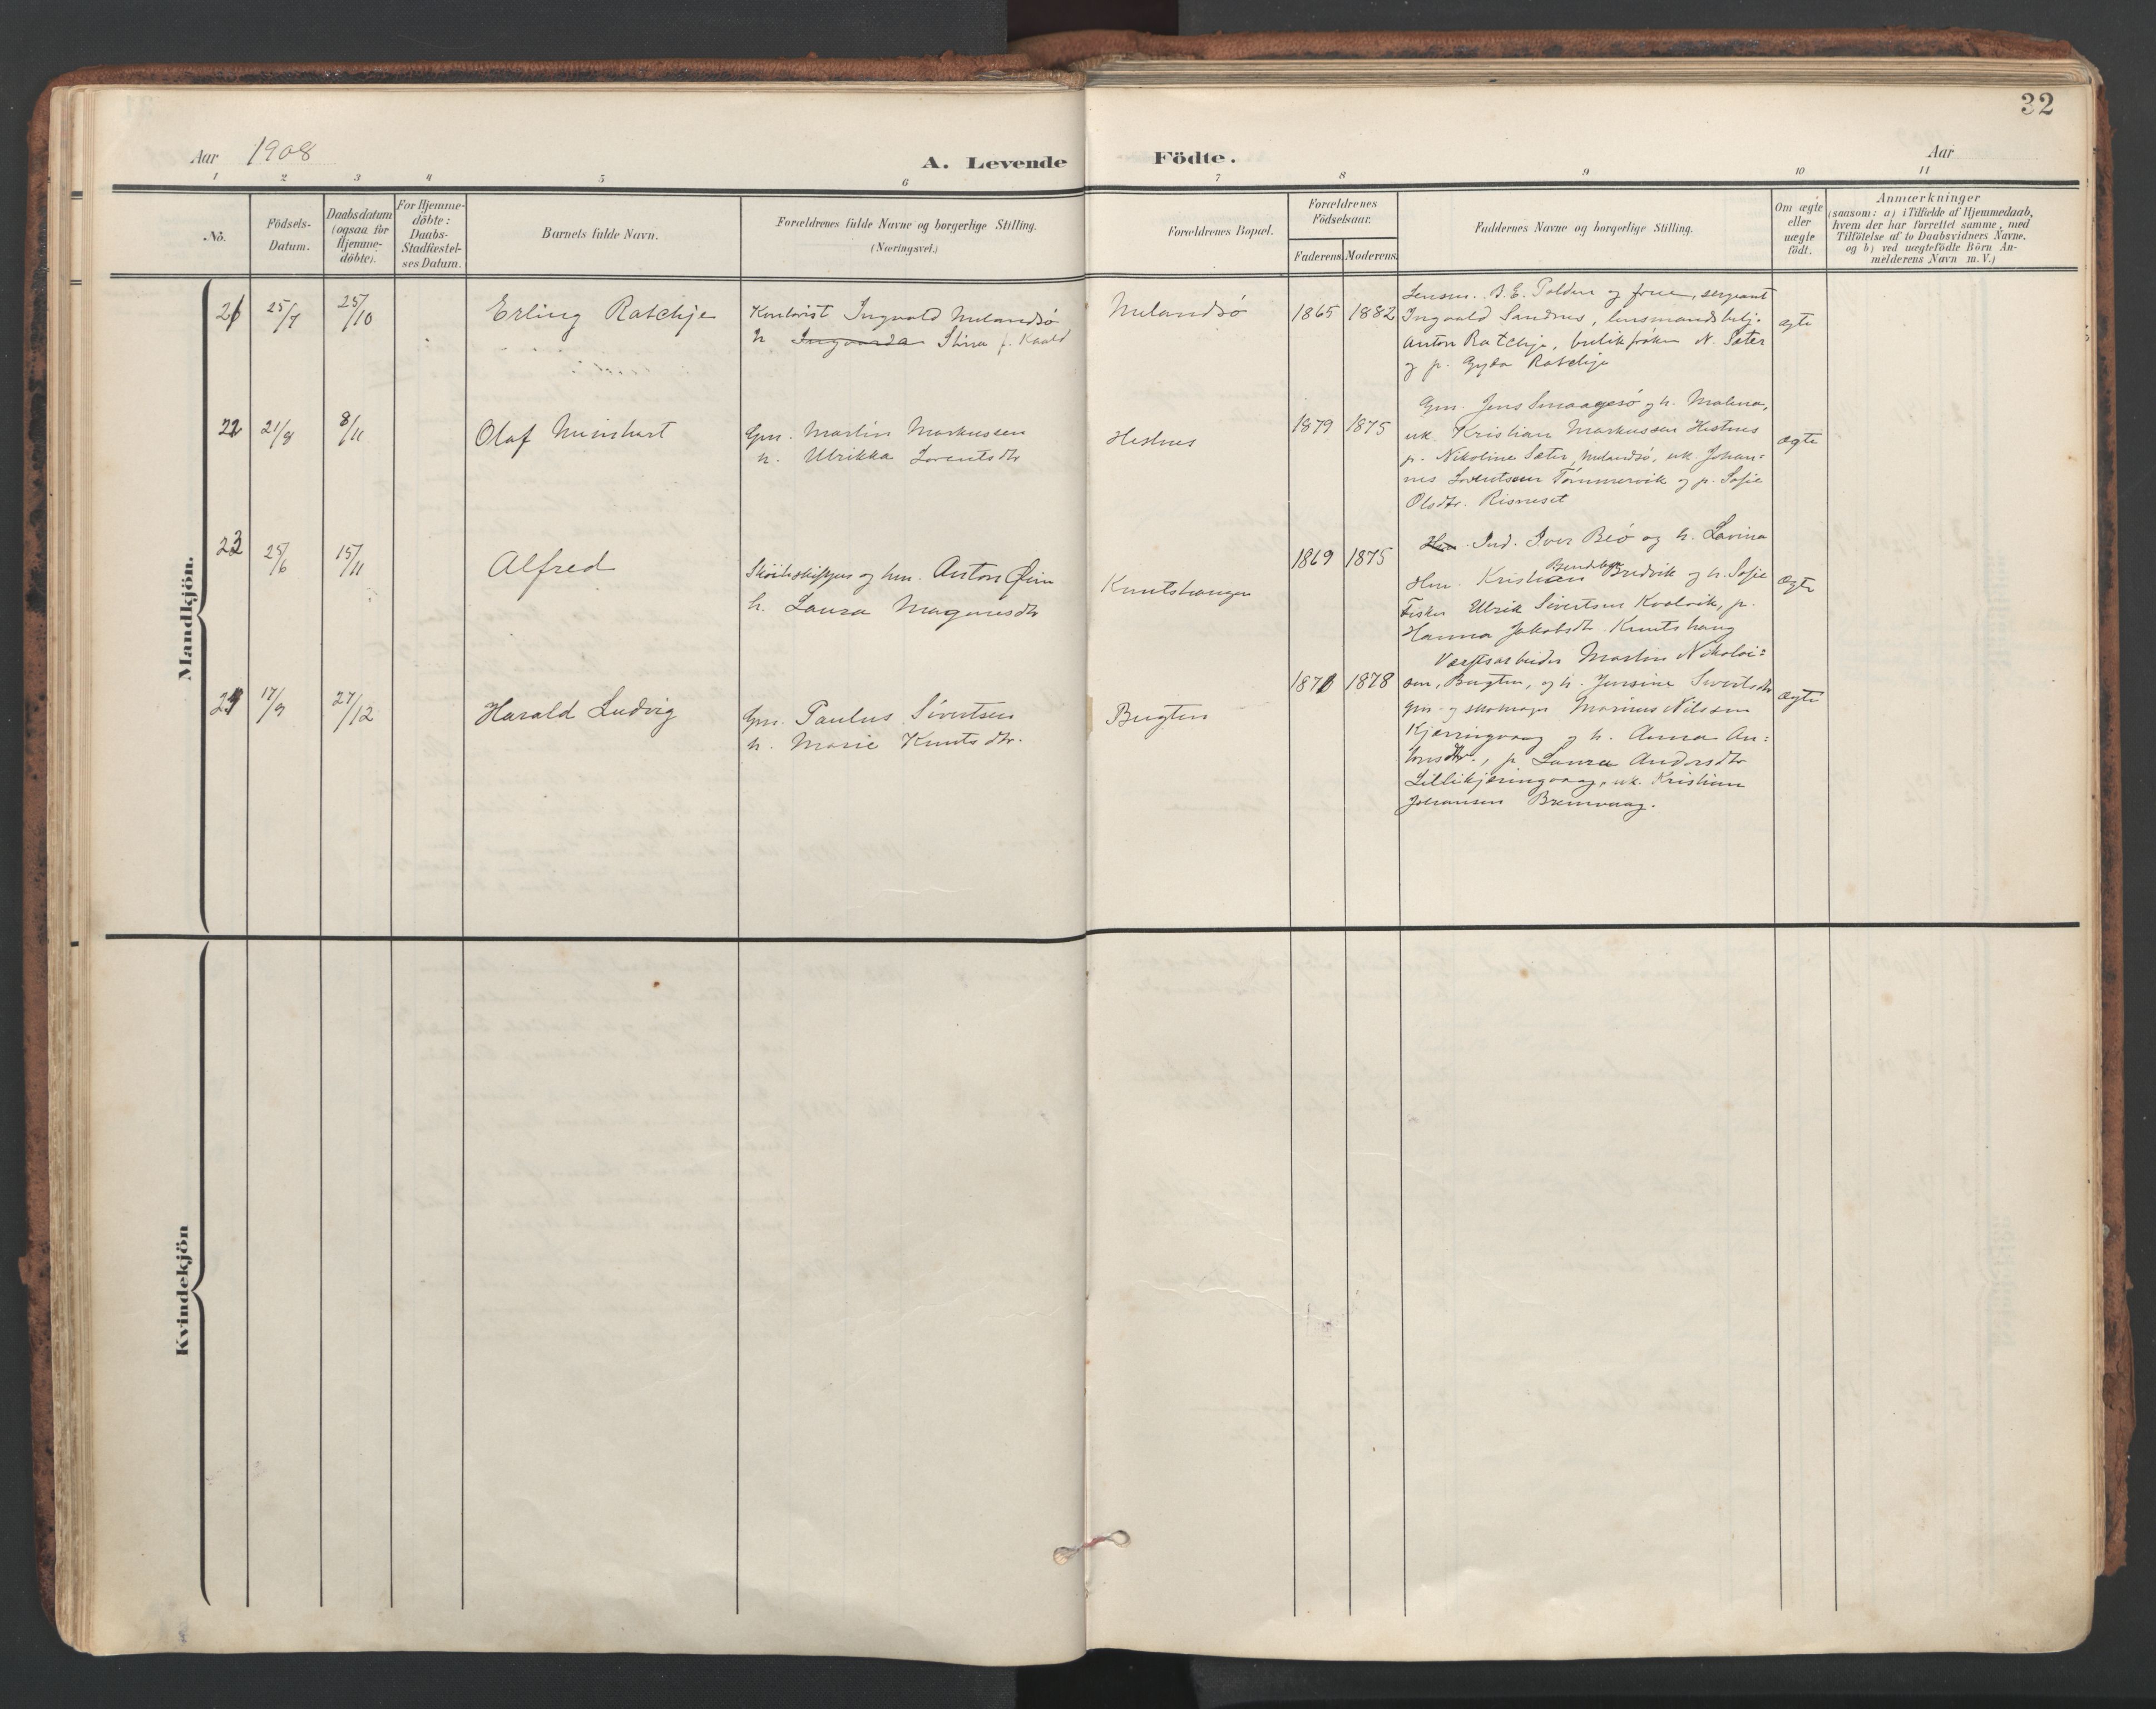 32
Aar 1908
A. Levende Födte.
Aar
1 2 3 4 5 6 7 8 9 10 11
No.
Födsels-Datum.
Daabsdatum (ogsaa for Hjemme-döbte).
For Hjemme-döbte: Daabs-Stadfæstel-ses Datum.
Barnets fulde Navn.
Forældrenes fulde Navne og borgerlige Stilling.
(Næringsvei.)
Forældrenes Bopæl.
Forældrenes Födselsaar.
Faderens. Moderens.
Faddernes Navne og borgerlige Stilling.
Om ægte eller uægte födt.
Anmærkninger
(saasom: a) i Tilfælde af Hjemmedaab,
hvem der har forrettet samme, med
Tilföielse af to Daabsvidners Navne,
og b) ved uægtefödte Börn An-
melderens Navn m. V.)
Mandkjön.
21 25/7 25/10 Erling Ratchje
Kontorist Ingvald Melandsö
h. Ingvarda Stina f. Kvald
Melandsö 1865 1882
Lensm. B. E. Polden og frue, sergeant
Ingvald Sandnes, lensmandsbetj.
Anton Ratchje, butikfröken N. Sæter
og p. Gyda Ratchje
ægte
22 21/8 8/11 Olaf Meinhart
Gm. Martin Markussen
h. Ulrikka Lorentsdtr
Hestnes 1879 1875
Gm. Jens Smaagesö og h. Malena,
uk. Kristian Markussen Hestnes
p. Nikoline Sæter, Melandsö, uk. Johan=
nes Lorentsen Tömmervik og p. Sofie
Olsdtr. Risneset
ægte
23 25/6 15/11 Alfred
Sköiteskipper og hm. Anton Öien
h. Laura Magnusdtr
Knutshaugen 1869 1875
Hm. Ind. Iver Beö og h. Lavina
Hm. Kristian Bredvik og h. Sofie
Fisker Ulrik Sivertsen Kvalvik, p.
Hanna Jakobsdtr. Knutshaug
ægte
24 17/9 27/12 Harald Ludvig
Gm. Paulus Sivertsen
h. Marie Knutsdtr.
Bugten 1871 1878
Værftsarbeider Martin Nikolai=
sen, Bugten, og h. Jensine Sivertsdtr
Gm. og skomager Marius Nilssen
Kjærringvaag og h. Anna An=
tonsdtr., p. Laura Andersdtr
Lillekjæringvaag, uk. Kristian
Johansen Bremvaag.
ægte
Kvindekjön